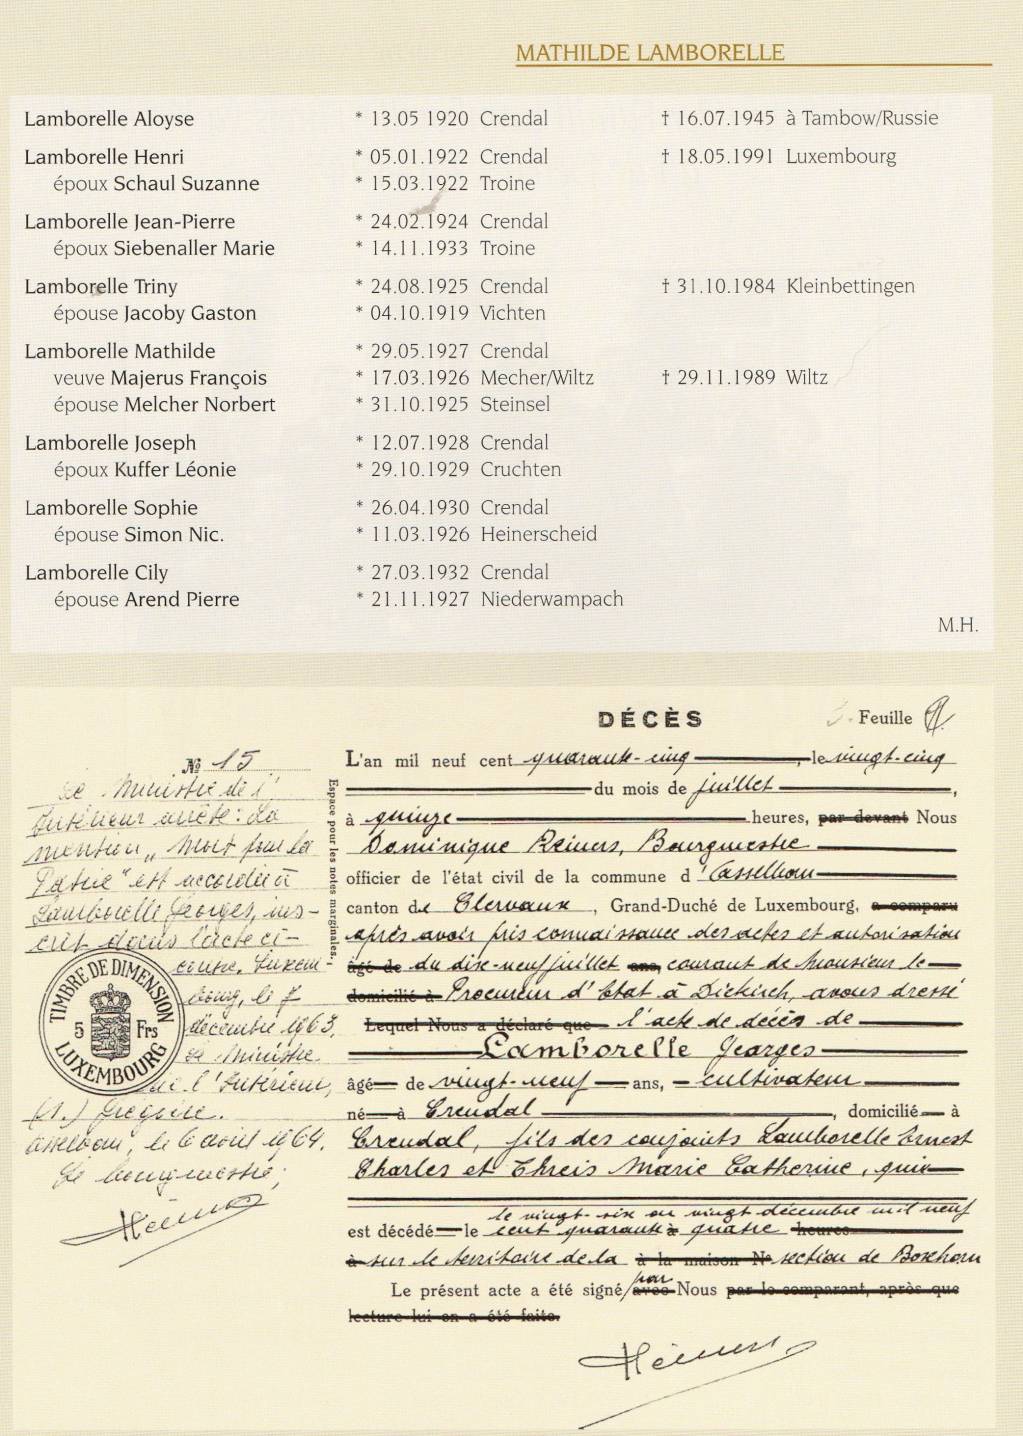 MATHILDE LAMBORELLE
Lamborelle Aloyse * 13.05 1920 Crendal † 16.07.1945 à Tambow/Russie
Lamborelle Henri * 05.01.1922 Crendal † 18.05.1991 Luxembourg
époux Schaul Suzanne * 15.03.1922 Troine
Lamborelle Jean-Pierre * 24.02.1924 Crendal
époux Siebenaller Marie * 14.11.1933 Troine
Lamborelle Triny * 24.08.1925 Crendal † 31.10.1984 Kleinbettingen
épouse Jacoby Gaston * 04.10.1919 Vichten
Lamborelle Mathilde * 29.05.1927 Crendal
veuve Majerus François * 17.03.1926 Mecher/Wiltz † 29.11.1989 Wiltz
épouse Melcher Norbert * 31.10.1925 Steinsel
Lamborelle Joseph * 12.07.1928 Crendal
époux Kuffer Léonie * 29.10.1929 Cruchten
Lamborelle Sophie * 26.04.1930 Crendal
épouse Simon Nic. * 11.03.1926 Heinerscheid
Lamborelle Cily * 27.03.1932 Crendal
épouse Arend Pierre * 21.11.1927 Niederwampach
M.H.
DÉCÈS
Feuille
№ 15
Le Ministre de l'
Intérieur arrête: La
mention „Mort pour la
Patrie" est accordée à
Lamborelle Georges, ins-
crit dans l'acte ci-
contre. Luxem-
bourg, le 7
décembre 1963.
Le Ministre
de l'Intérieur,
(s.) Grégoire.
Asselborn, le 6 août 1964.
Le bourgmestre,
TIMBRE DE DIMENSION
5 Frs
LUXEMBOURG
Espace pour les notes marginales.
L'an mil neuf cent quarante-cinq, le vingt-cinq
du mois de juillet,
à quinze heures, par devant Nous
Dominique Reiners, Bourgmestre
officier de l'état civil de la commune d'Asselborn
canton de Clervaux, Grand-Duché de Luxembourg, a comparu
après avoir pris connaissance des actes et autorisation
âgé de du dix-neuf juillet ans, courant de Monsieur le
domicilié à Procureur d'Etat à Diekirch, avons dressé
Lequel Nous a déclaré que l'acte de décès de
Lamborelle Georges
âgé de vingt-neuf ans, cultivateur
né à Crendal, domicilié à
Crendal, fils des conjoints Lamborelle Ernest
Charles et Threis Marie Catherine, qui
le vingt-six ou vingt décembre mil neuf
est décédé le cent quarante à quatre heures
à sur le territoire de la à la maison № section de Boxhorn
par
Le présent acte a été signé/avec Nous par le comparant, après que
lecture lui en a été faite.